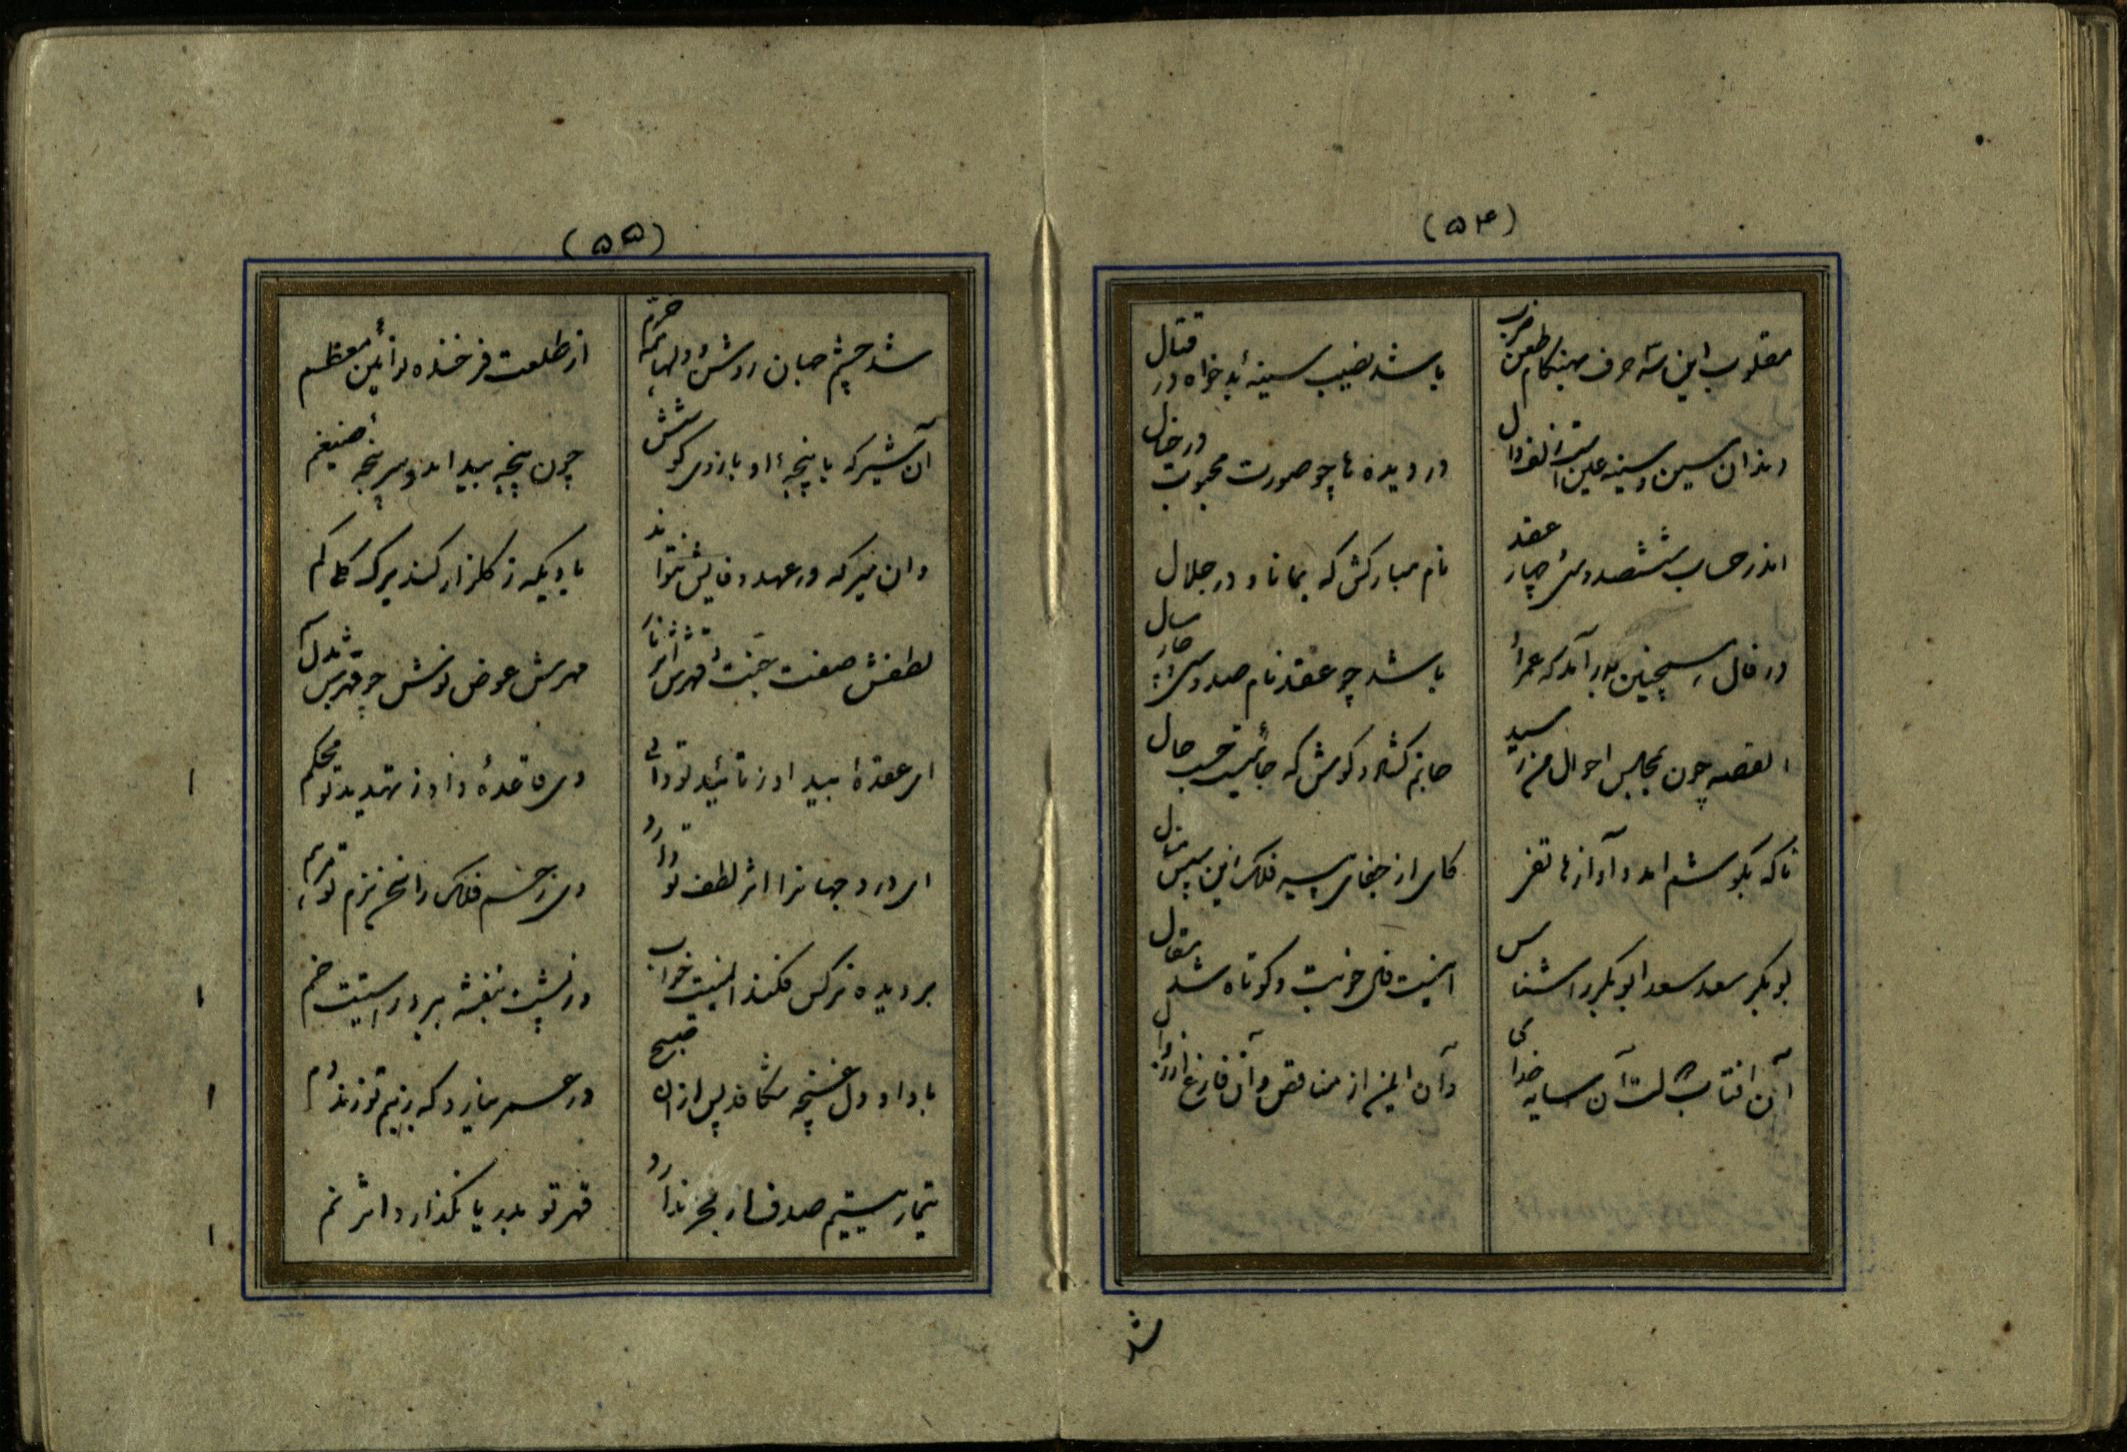 (۵۴)
مقلوب این سه حرف بهنکام طعن و ضرب
باشد نصیب سینهٔ بدخواه در قتال
دندان سین و سینه عین است و الف و دال
در دیده ها چو صورت محبوب در خیال
اندر حساب ششصد و سی چار عقد
نام مبارکش که بماناد در جلال
در فال چنین بدر آمد که عمر او
باشد چو عقد نام صد و سی و چار سال
القصه چون بمجلس احوال من رسید
جانم کشاد کوش که جائیست حسب حال
ناکه بکوشم آمد آواز هاتفی
کای از جفای سیر فلک این سپس منال
بوبکر سعد سعد ابوبکر را شناس
اینست فال خوبت و کوتاه شد مقال
آن آفتاب ملت آن سایه خدای
آن ایمن از مناقص و آن فارغ از زوال
شد
(۵۵)
شد چشم جهان روشن و دلها همه خرم
از طلعت فرخنده لرائین معظم
آن شیر که با پنجهٔ او بازوی کوشش
چون پنجه بید آمد و سرپنجهٔ ضیغم
وان میر که در عهد وفایش نتواند
بادیکه ز کلزار کند برک کلی کم
لطفش صفت جنت و قهرش اثر نار
مهرش عوض نوش چو قهرش بدل سم
ای عقدهٔ امید او ز تائید تو واهی
وی قاعدهٔ داد ز تمهید تو محکم
ای درد جهانرا اثر لطف تو دارو
وی زخم فلک را نخ بزم تو مرهم
بر دیده نرکس فکند امنیت خواب
در پشت بنفشه ببرد راستیت خم
باد ار دل غنچه شکافد پس ازین صبح
در عصر نیارد که بنیم تو زند دم
تیمار یتیم صدف ار بحر ندارد
قهر تو بدریا نکذارد اثر نم